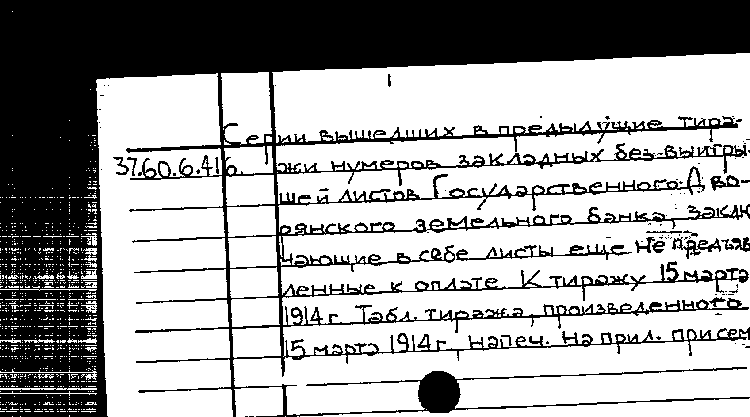 Серии вышедших в предыдущие тира-
37.60.6.416. жи нумеров закладных без выигры-
шей листов Государственного Дво-
рянского земельного банка, заклю
чающие в себе листы еще не предъяв
ленные к оплате. К тиражу 15 марта
1914 г. Табл. тиража, произведенного
15 марта 1914 г., напеч. на прил. при сем